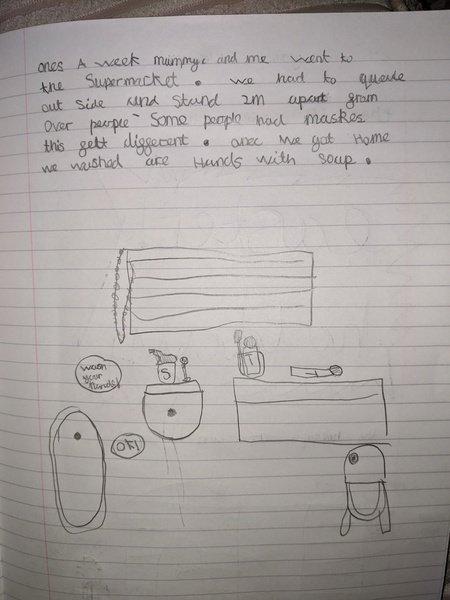 ones A week mummye and me went to
the Supermarket. we had to queue
out side and stand 2m apart grom
Over people Some people had maskes
this gelt diggerent. onec we got Home
we washed are Hands with soup.
wash
your
hands!
S
T
OK!